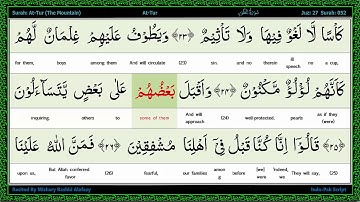 Surah: At-Tur (The Mountain) At-Tur Juz: 27 Surah: 052
كَاْسًا لَّا لَغْوٌ فِيْهَا وَلَا تَاْثِيْمٌ ﴿٢٣﴾ وَيَطُوْفُ عَلَيْهِمْ غِلْمَانٌ لَّهُمْ
for them, boys among them And will circulate (23) sin. and no therein ill speech no a cup,
كَاَنَّهُمْ لُؤْلُؤٌ مَّكْنُوْنٌ ﴿٢٤﴾ وَاَقْبَلَ بَعْضُهُمْ عَلٰى بَعْضٍ يَّتَسَآءَلُوْنَ
inquiring, others to some of them And will approach (24) well-protected. pearls as if they (were)
﴿٢٥﴾ قَالُوْٓا اِنَّا كُنَّا قَبْلُ فِيْٓ اَهْلِنَا مُشْفِقِيْنَ ﴿٢٦﴾ فَمَنَّ اللّٰهُ عَلَيْنَا
upon us, But Allah conferred favor (26) fearful, our families among before [we] were Indeed, we They will say, (25)
Recited By Mishary Rashid Alafasy Indo-Pak Script